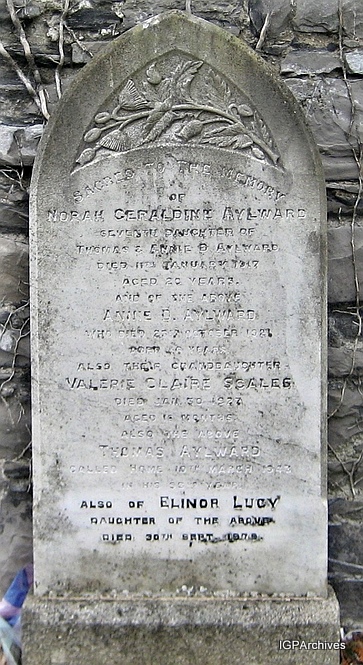 SACRED TO THE MEMORY
OF
NORAH GERALDINE AYLWARD
SEVENTH DAUGHTER OF
THOMAS & ANNIE D. AYLWARD
DIED 11TH JANUARY 1917
AGED 20 YEARS.
AND OF THE ABOVE
ANNIE D. AYLWARD
WHO DIED
YEARS
ALSO THEIR GRANDDAUGHTER
VALERIE CLAIRE SCALES
DIED JAN. 30. 1927
AGED MONTHS.
ALSO THE ABOVE
THOMAS AYLWARD
CALLED HOME 10TH MARCH
IN HIS YEAR
ALSO OF ELINOR LUCY
DAUGHTER OF THE ABOVE
DIED 30TH SEPT.
IGPArchives